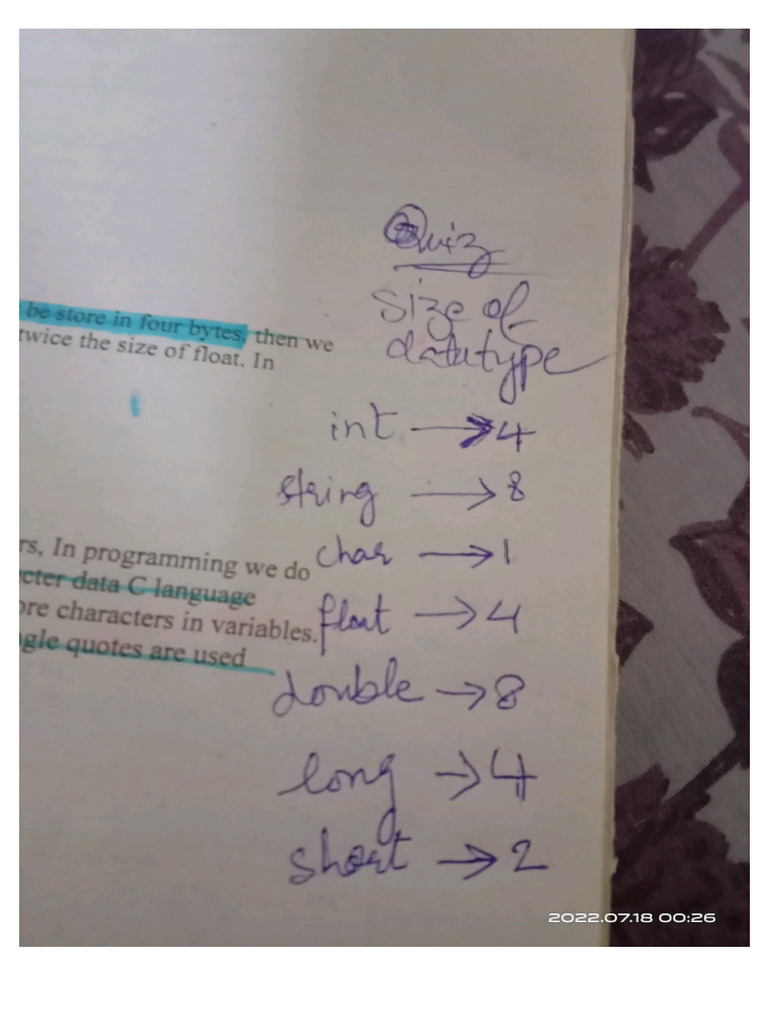 Quiz
size of
datatype
be store in four bytes, then we
twice the size of float. In
int → 4
string → 8
rs, In programming we do
char → 1
cter data C language
ore characters in variables.
float → 4
gle quotes are used
double → 8
long → 4
short → 2
2022.07.18 00:26